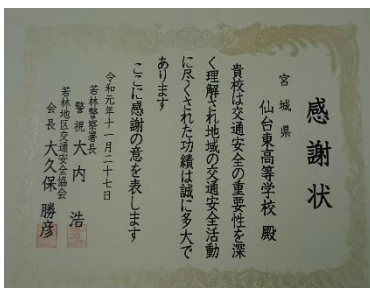 感謝状
宮城県
仙台東高等学校 殿
貴校は交通安全の重要性を深
く理解され地域の交通安全活動
に尽くされた功績は誠に多大で
あります
ここに感謝の意を表します
令和元年十一月二十七日
若林警察署長
警視 大内 浩
若林地区交通安全協会
会長 大久保 勝彦